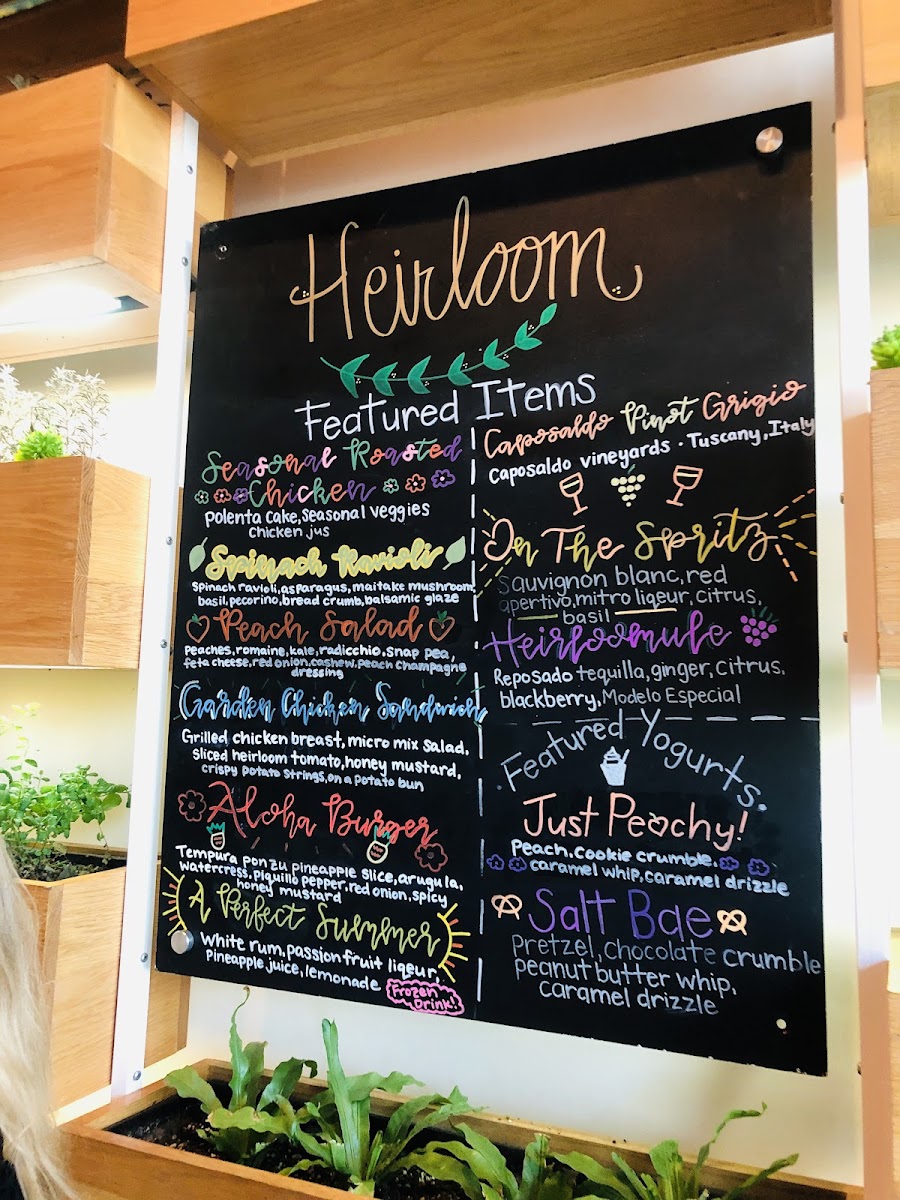 Heirloom
Featured Items
Seasonal Roasted
Chicken
Polenta cake, seasonal veggies
Chicken jus
Spinach Ravioli
Spinach ravioli, asparagus, maitake mushroom,
basil, pecorino, bread crumb, balsamic glaze
Peach Salad
Peaches, romaine, kale, radicchio, snap pea,
feta cheese, red onion, cashew, peach champagne
dressing
Garden Chicken Sandwich
Grilled chicken breast, micro mix salad,
sliced heirloom tomato, honey mustard,
crispy potato strings, on a potato bun
Aloha Burger
Tempura ponzu pineapple slice, arugula,
watercress, piquillo pepper, red onion, spicy
honey mustard
A Perfect Summer
White rum, passion fruit liqeur,
Pineapple juice, lemonade
Frozen
Drink!
Caposaldo Pinot Grigio
Caposaldo vineyards · Tuscany, Italy
On The Spritz
Sauvignon blanc, red
apertivo, mitro liqeur, citrus,
basil
Heirloomule
Reposado tequilla, ginger, citrus,
blackberry, Modelo Especial
·Featured Yogurts·
Just Peachy!
Peach, cookie crumble,
caramel whip, caramel drizzle
Salt Bae
Pretzel, chocolate crumble
peanut butter whip,
caramel drizzle